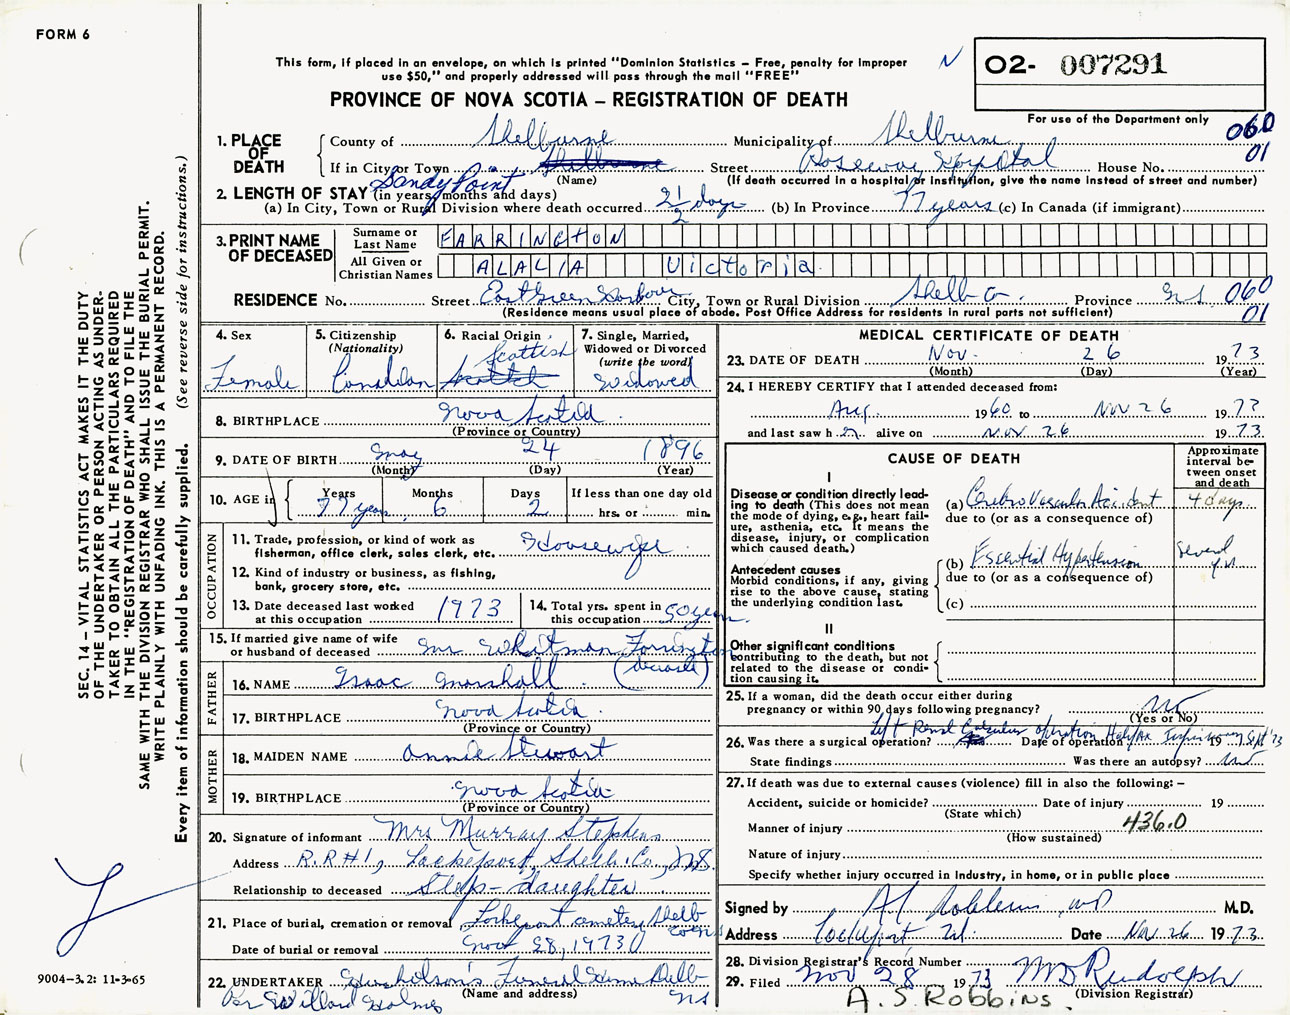 FORM 6
This form, if placed in an envelope, on which is printed "Dominion Statistics – Free, penalty for improper
use $50," and properly addressed will pass through the mail "FREE"
PROVINCE OF NOVA SCOTIA – REGISTRATION OF DEATH
N
02- 007291
For use of the Department only
060
01
1. PLACE OF DEATH
County of Shelburne Municipality of Shelburne
If in City or Town Sandy Point Shelburne Street Roseway Hospital House No.
(Name) (If death occurred in a hospital or institution, give the name instead of street and number)
2. LENGTH OF STAY (in years, months and days)
(a) In City, Town or Rural Division where death occurred 2 1/2 days (b) In Province 77 years (c) In Canada (if immigrant)
3. PRINT NAME OF DECEASED
Surname or Last Name FARRINGTON
All Given or Christian Names ALALIA Victoria
RESIDENCE No. Street East Green Harbour City, Town or Rural Division Shelb Co. Province N.S. 060
(Residence means usual place of abode. Post Office Address for residents in rural parts not sufficient) 01
4. Sex
Female
5. Citizenship
(Nationality)
Canadian
6. Racial Origin
Scottish
Scotch
7. Single, Married,
Widowed or Divorced
(write the word)
Widowed
8. BIRTHPLACE Nova Scotia
(Province or Country)
9. DATE OF BIRTH May 24 1896
(Month) (Day) (Year)
10. AGE in Years Months Days If less than one day old
77 years 6 2 hrs. or min.
OCCUPATION
11. Trade, profession, or kind of work as
fisherman, office clerk, sales clerk, etc. Housewife
12. Kind of industry or business, as fishing,
bank, grocery store, etc.
13. Date deceased last worked
at this occupation 1973
14. Total yrs. spent in
this occupation 50 years
15. If married give name of wife
or husband of deceased Mr Whitman Farrington
(deceased)
FATHER
16. NAME Isaac Marshall
17. BIRTHPLACE Nova Scotia
(Province or Country)
MOTHER
18. MAIDEN NAME Annie Stewart
19. BIRTHPLACE Nova Scotia
(Province or Country)
20. Signature of informant Mrs Murray Stephens
Address R.R #1, Lockeport, Shelb. Co, N.S.
Relationship to deceased Step-daughter
21. Place of burial, cremation or removal Lockeport cemetery Shelb
Date of burial or removal Nov 28, 1973
22. UNDERTAKER Funeral Home Shelb
(Name and address) NS
Per Willard Holmes
MEDICAL CERTIFICATE OF DEATH
23. DATE OF DEATH Nov. 26 1973
(Month) (Day) (Year)
24. I HEREBY CERTIFY that I attended deceased from:
Aug. 1960 to Nov 26 1973
and last saw h er alive on Nov 26 1973
CAUSE OF DEATH
Approximate
interval be-
tween onset
and death
I
Disease or condition directly lead-
ing to death (This does not mean
the mode of dying, e.g., heart fail-
ure, asthenia, etc. It means the
disease, injury, or complication
which caused death.)
(a) Cerebro Vascular Accident 4 days
due to (or as a consequence of)
Antecedent causes
Morbid conditions, if any, giving
rise to the above cause, stating
the underlying condition last.
(b) Essential Hypertension Several yrs
due to (or as a consequence of)
(c)
II
Other significant conditions
contributing to the death, but not
related to the disease or condi-
tion causing it.
25. If a woman, did the death occur either during
pregnancy or within 90 days following pregnancy? No
(Yes or No)
Left Renal Calculus operation Halifax Infirmary Sept '73
26. Was there a surgical operation? Date of operation 19
State findings Was there an autopsy? No
27. If death was due to external causes (violence) fill in also the following: –
Accident, suicide or homicide? Date of injury 19
(State which)
Manner of injury 436.0
(How sustained)
Nature of injury
Specify whether injury occurred in industry, in home, or in public place
Signed by M.D.
Address Lockeport N.S. Date Nov 26 1973
28. Division Registrar's Record Number
29. Filed Nov 28 1973 MD Rudolph
(Division Registrar)
A.S. Robbins.
SEC. 14 – VITAL STATISTICS ACT MAKES IT THE DUTY
OF THE UNDERTAKER OR PERSON ACTING AS UNDER-
TAKER TO OBTAIN ALL THE PARTICULARS REQUIRED
IN THE "REGISTRATION OF DEATH" AND TO FILE THE
SAME WITH THE DIVISION REGISTRAR WHO SHALL ISSUE THE BURIAL PERMIT.
WRITE PLAINLY WITH UNFADING INK. THIS IS A PERMANENT RECORD.
Every item of information should be carefully supplied. (See reverse side for instructions.)
9004-3.2: 11-3-65